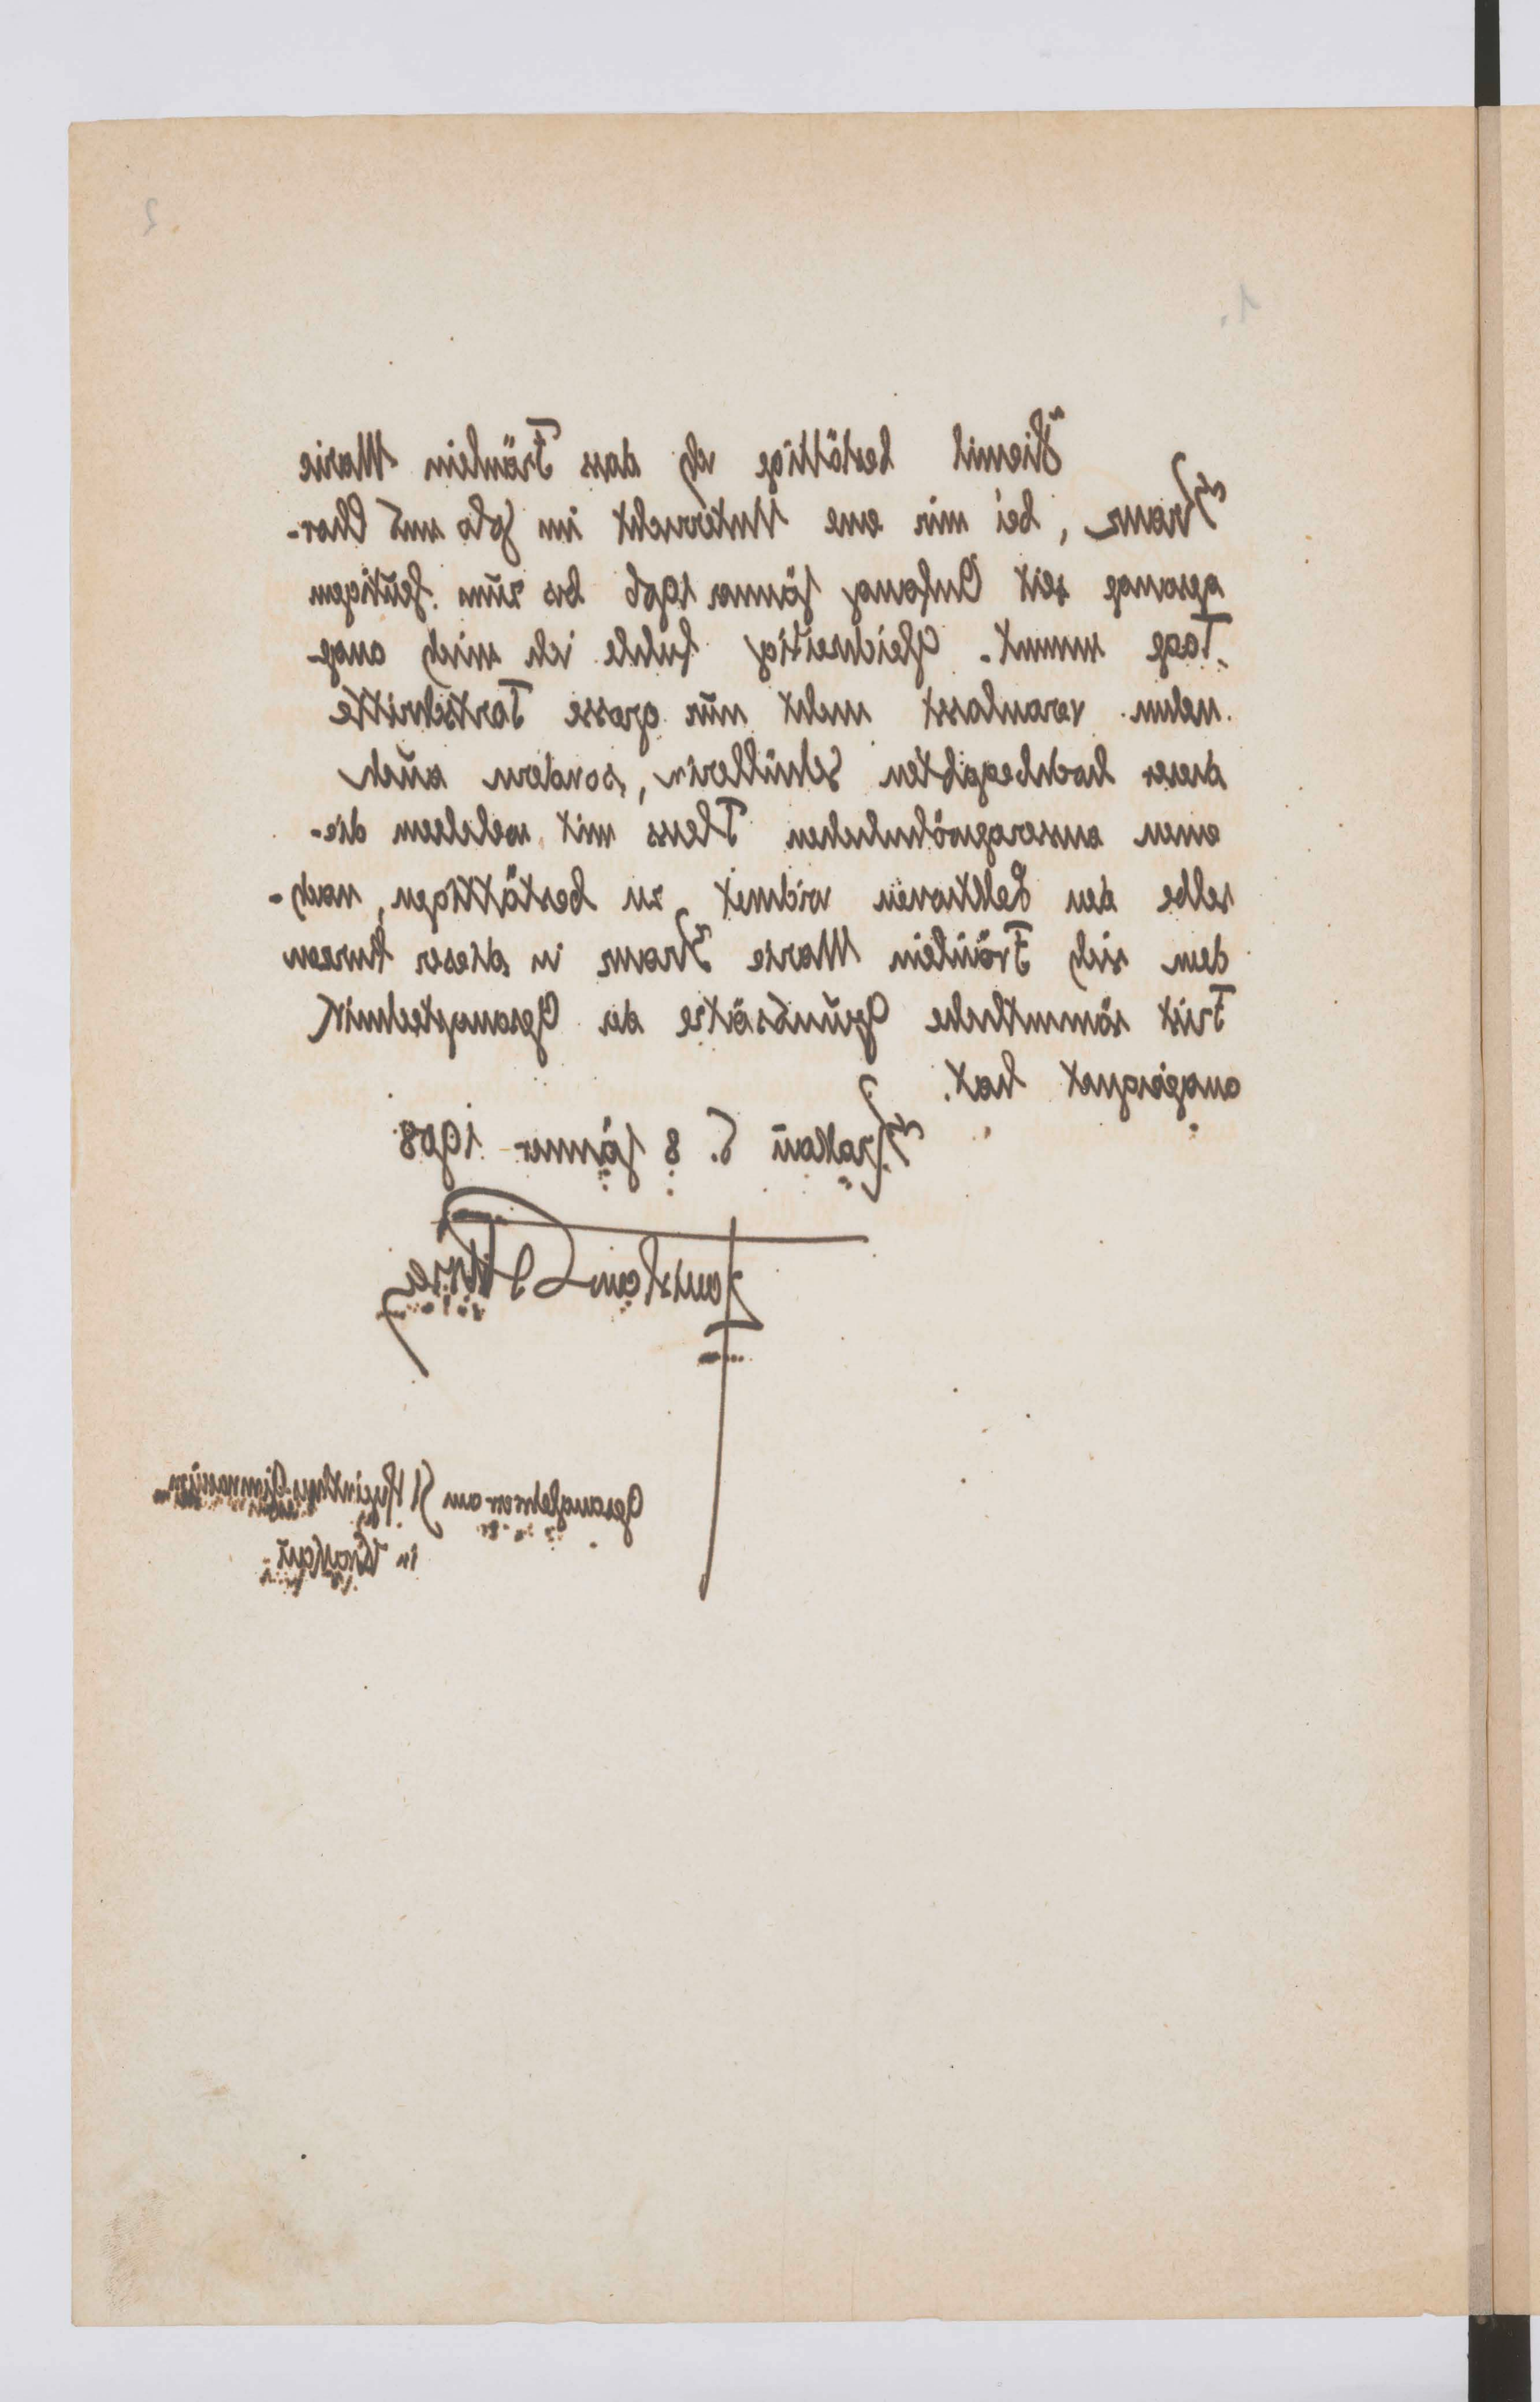 2
1.
Hiemit bestättige ich dass Fräulein Marie
Kranz, bei mir eine Unterricht im Solo und Chor-
gesange seit Anfang Jänner 1906 bis zum heutigem
Tage nimmt. Gleichzeitig fühle ich mich ange-
nehm veranlasst nicht nur grosse Fortschritte
dieser hochbegabten Schüllerin, sondern auch
einen aussergwöhnlichen Fleiss mit welchem die-
selbe den Lektionen widmet zu bestättigen, nach-
dem sich Fräulein Marie Kranz in dieser kurzen
Frist sämmtliche Grundsätze der Gesangstechnik
angeignet hat.
Krakau d. 8 Jänner 1908
Gesanglehrer am St Hyacinthus Gimnasium
in Krakau